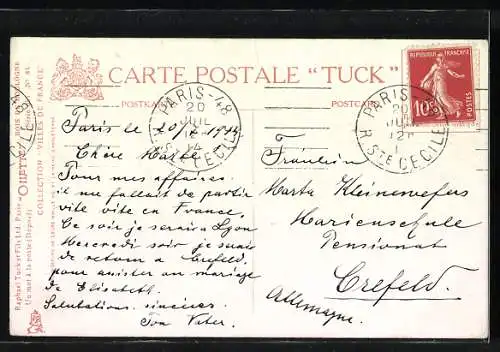 CARTE POSTALE "TUCK"
POSTKARTE
POSTCARD
PARIS-48
20
JUIL
R. STE CECILE
PARIS-48
20
R. STE CECILE
REPUBLIQUE FRANÇAISE
10c
POSTES
Raphael Tuck et Fils Ltd. Paris
OILETTE
COLLECTION VILLES DE FRANCE
Paris le 20/7 1914
Chère Marthe!
Pour mes affaires
il me fallait de partir
vite vite en France,
Ce soir je serai à Lyon
Mercredi soir je serai
de retour a Crefeld
pour assister au mariage
de Elisabeth.
Salutations sincères
Ton Vater.
Fräulein
Marta Kleinewefers
Marienschule
Pensionat
Crefeld.
Allemagne.